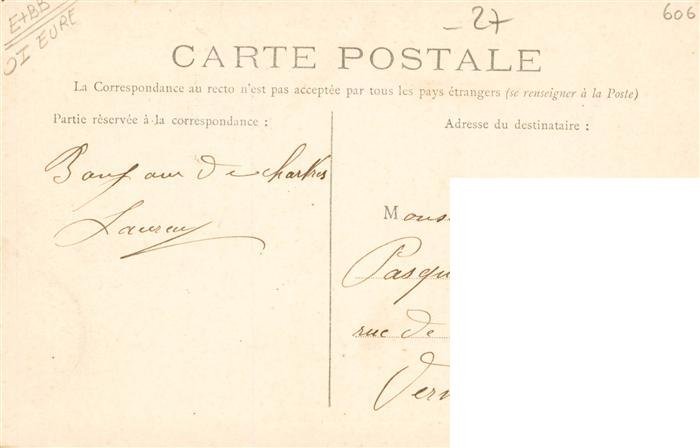 E+BB
OI EURE
- 27
606
CARTE POSTALE
La Correspondance au recto n'est pas acceptée par tous les pays étrangers (se renseigner à la Poste)
Partie réservée à la correspondance :
Bonjour de Chartres
Adresse du destinataire :
Mons
Pasqu
rue de
Vern